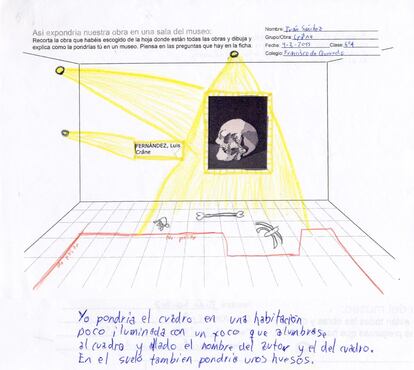 Así expondría nuestra obra en una sala del museo:
Recorta la obra que habéis escogido de la hoja donde están todas las obras y dibuja y
explica como la pondrías tú en un museo. Piensa en las preguntas que hay en la ficha.
Nombre: Iván Sánchez
Grupo/Obra: Crâne
Fecha: 4-2-2013 Clase: 6ºA
Colegio: Francisco de Quevedo
FERNÁNDEZ, Luis
Crâne
No pisar
No pisar
Yo pondría el cuadro en una habitación
poco iluminada con un foco que alumbrase
al cuadro y al lado el nombre del autor y el del cuadro.
En el suelo tambien pondria unos huesos.